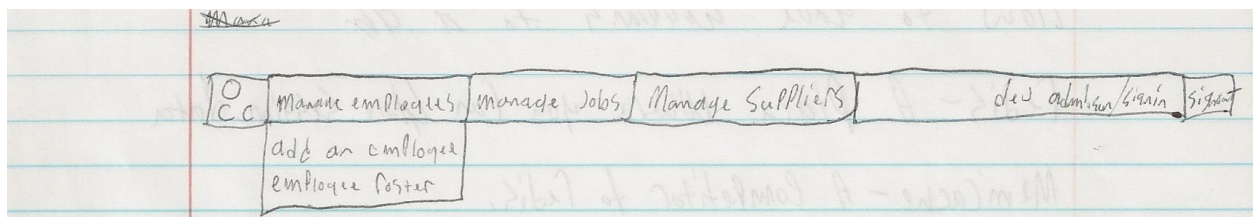 O
C C
Manage employees
Manage Jobs
Manage Suppliers
dev admin/signin
signout
add an employee
employee roster